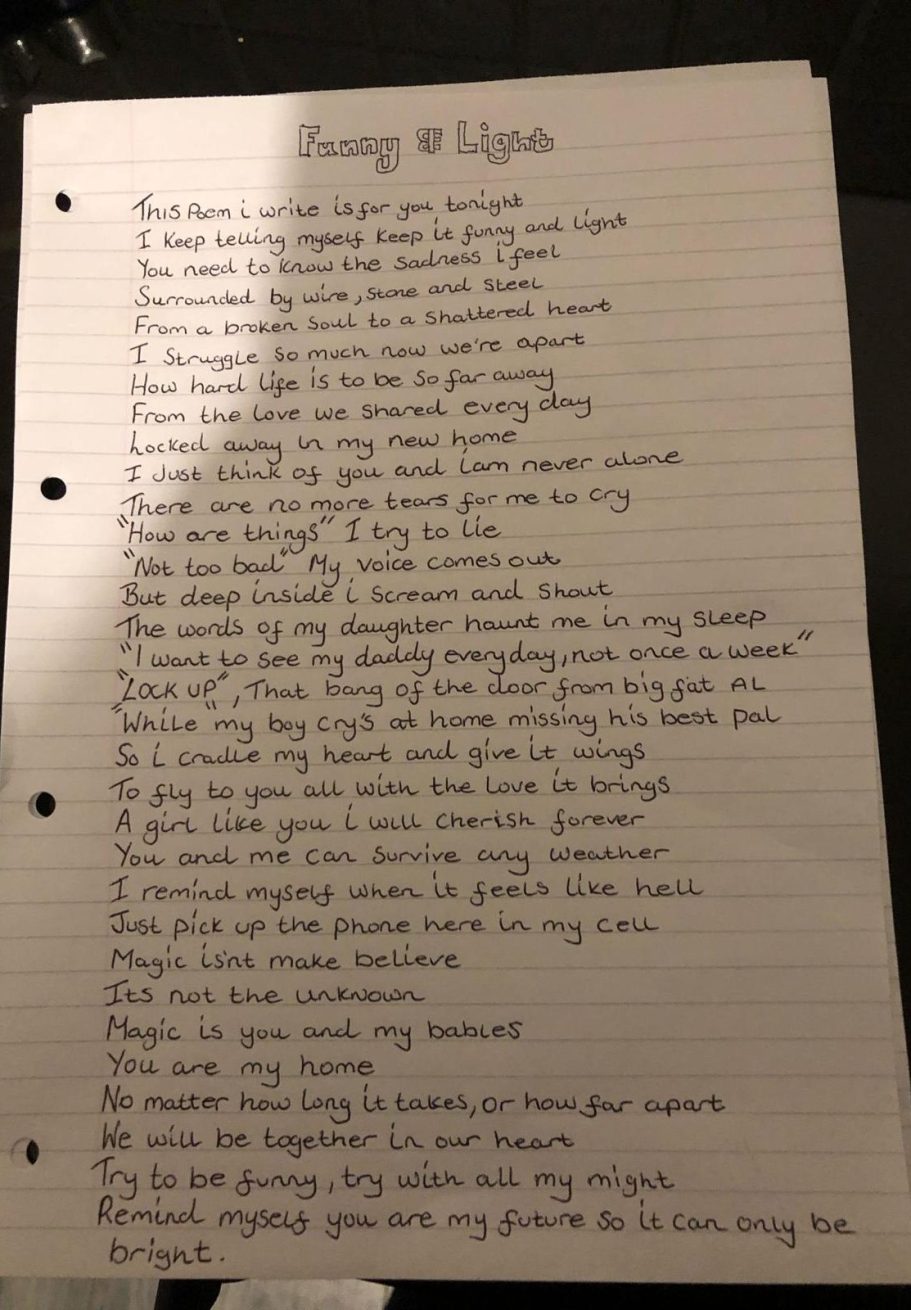 Funny & Light
This Poem i write is for you tonight
I Keep telling myself Keep it funny and light
You need to know the sadness i feel
Surrounded by wire, stone and steel
From a broken soul to a shattered heart
I struggle so much now we're apart
How hard life is to be so far away
From the love we shared every day
Locked away in my new home
I Just think of you and iam never alone
There are no more tears for me to cry
"How are things" I try to lie
"Not too bad" My voice comes out
But deep inside i scream and shout
The words of my daughter haunt me in my sleep
"I want to see my daddy everyday, not once a week"
"Lock up", That bang of the door from big fat AL
"While" my boy cry's at home missing his best pal
So i cradle my heart and give it wings
To fly to you all with the love it brings
A girl like you i will cherish forever
You and me can survive any weather
I remind myself when it feels like hell
Just pick up the phone here in my cell
Magic is'nt make believe
Its not the unknown
Magic is you and my babies
You are my home
No matter how long it takes, or how far apart
We will be together in our heart
Try to be funny, try with all my might
Remind myself you are my future so it can only be
bright.